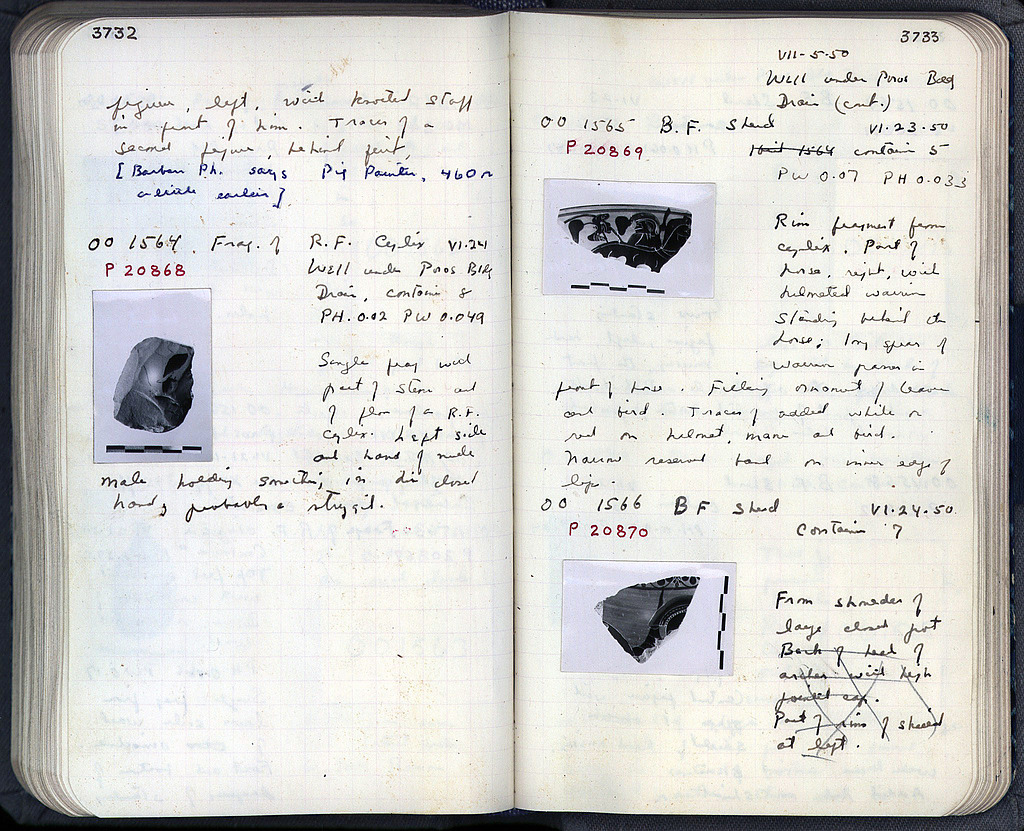 3732
figure, left, with knotted staff
in front of him. Traces of a
second figure, behind first,
[Barbara Ph. says Pig Painter, 460 or
a little earlier]
OO 1564. Frag. of R.F. Cylix VI.24
P 20868
Well under Poros Bldg
Drain, container 8
PH. 0.02 PW 0.049
Single frag with
part of stem and
of floor of a R.F.
cylix. Left side
and hand of nude
male holding something in his closed
hand, probably a strygil.
3733
VII-5-50
Well under Poros Bldg
Drain (cont.)
OO 1565 B.F. Sherd VI.23.50
P 20869
1564 container 5
PW 0.07 PH 0.033
Rim fragment from
cylix. Part of
horse, right, with
helmeted warrior
standing behind the
horse; long spear of
warrior passes in
front of horse. Filling ornament of leaves
and bird. Traces of added white or
red on helmet, mane and bird.
Narrow reserved band on inner edge of
lip.
OO 1566 BF Sherd VI.24.50.
P 20870
Container 7
From shoulder of
large closed pot
Back of head of
archer with high
pointed cap.
Part of rim of shield
at left.